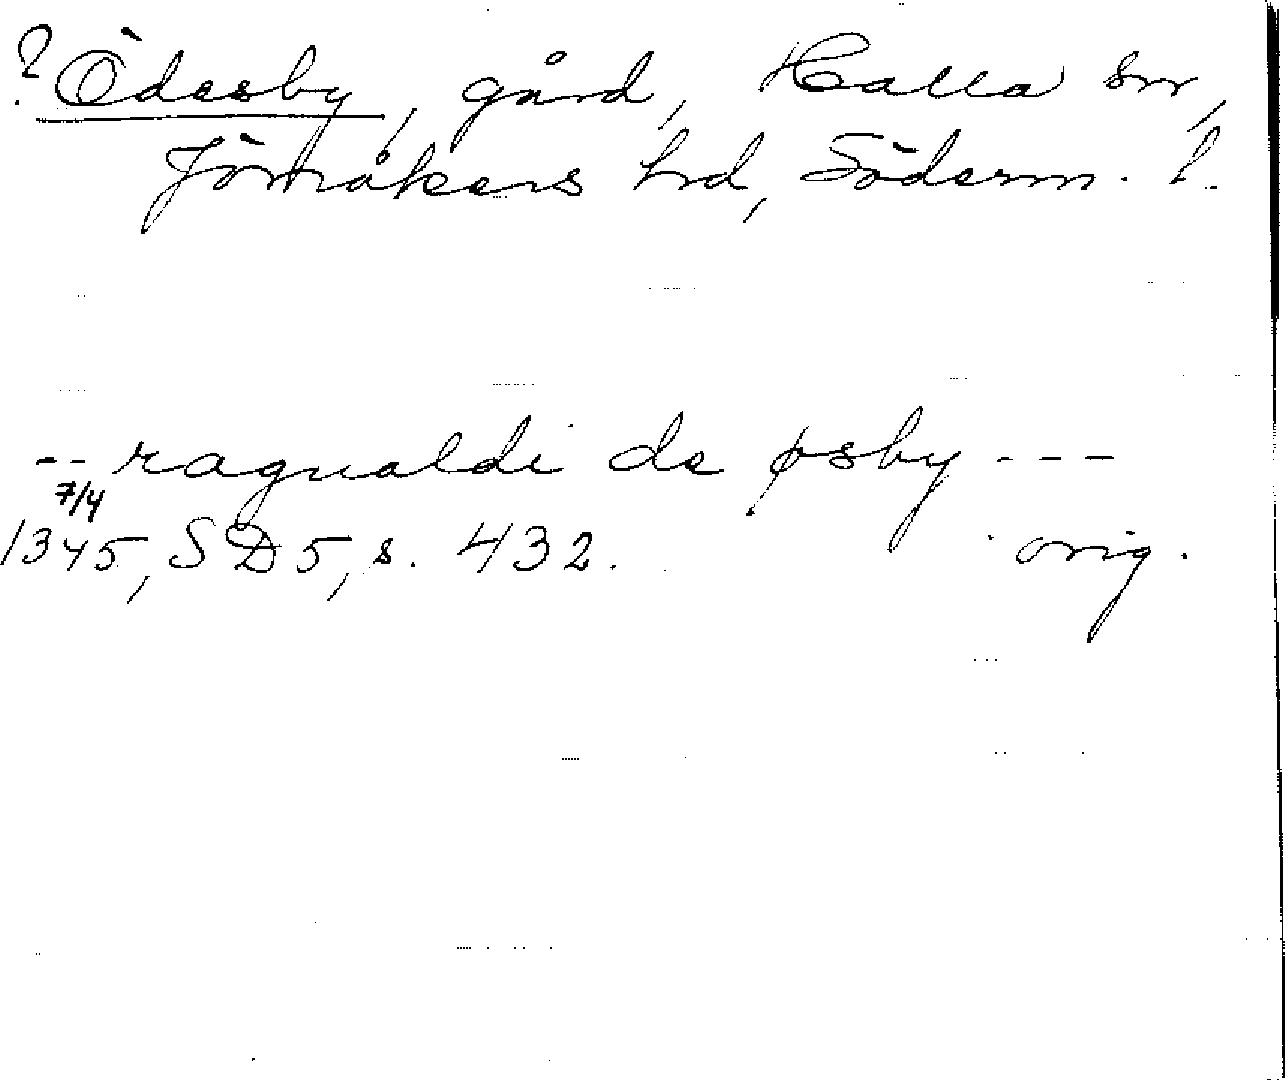 ? Ödesby, gård, Halla sn,
Jönåkers hd, Söderm. l.
-- ragualdi de øsby ---
7/4
1345, SD 5, s. 432. orig.